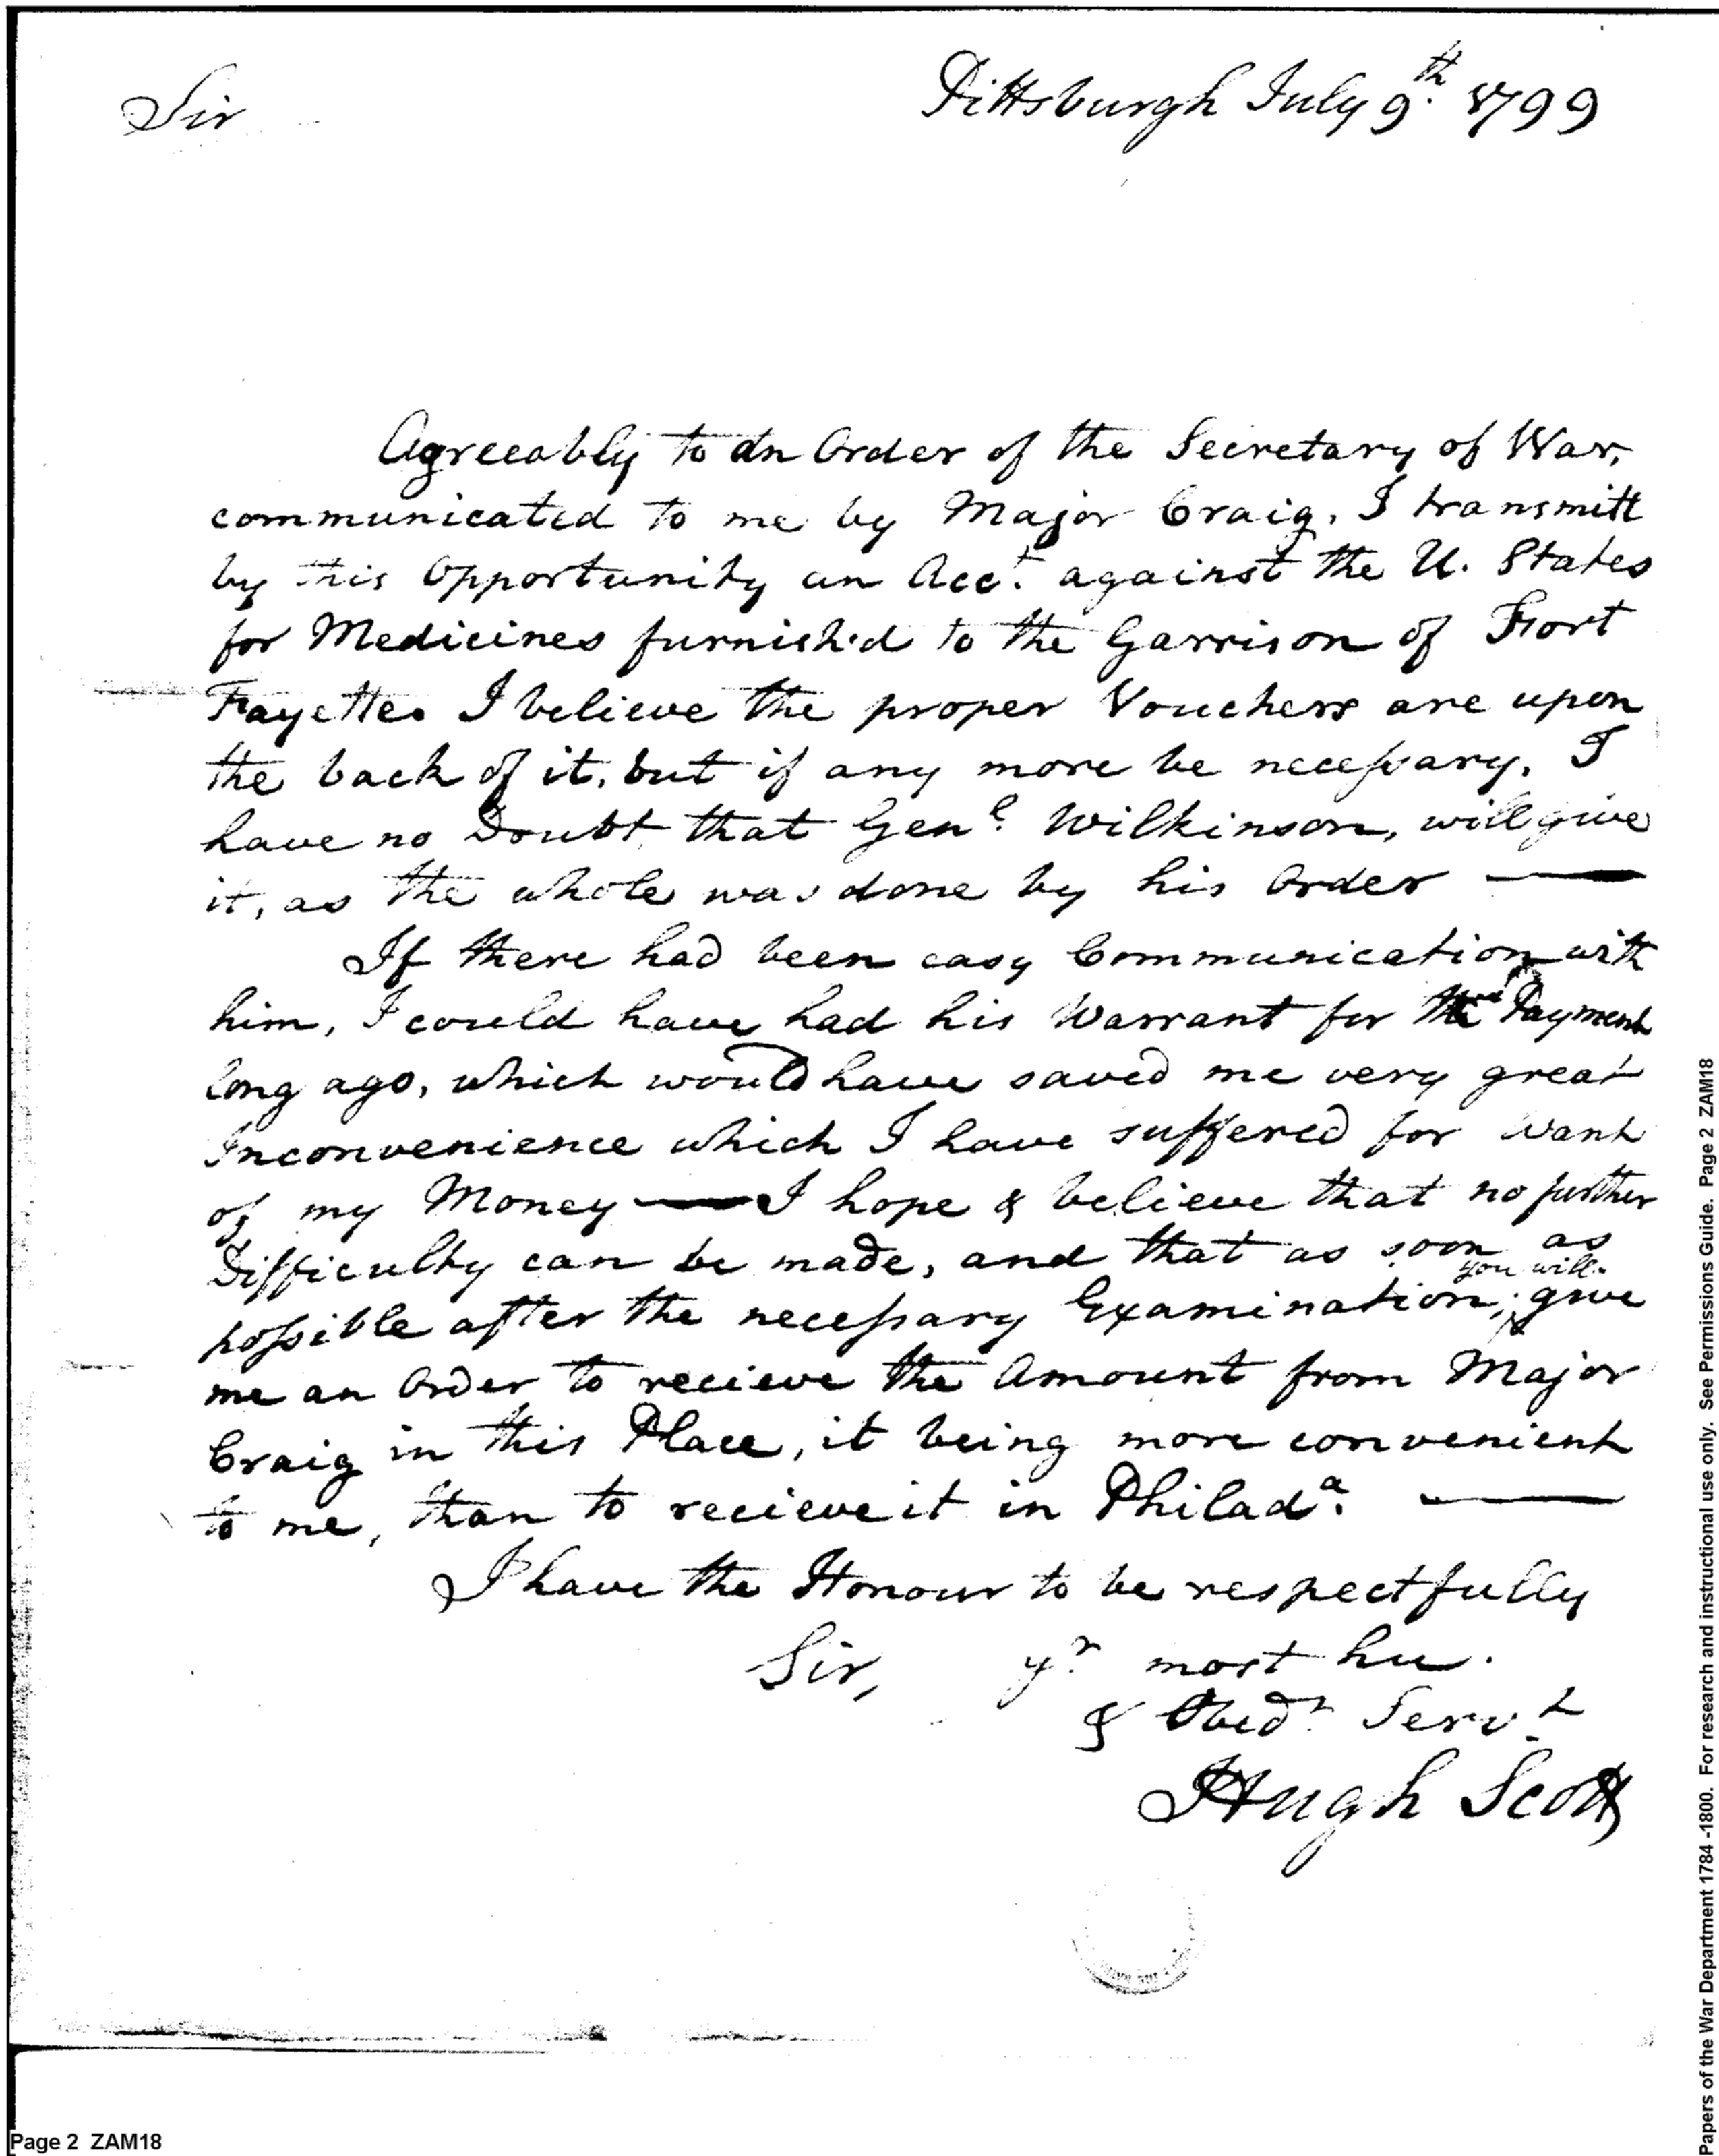 Sir
Pittsburgh July 9th. 1799
Agreeably to an Order of the Secretary of War,
communicated to me by Major Craig, I transmitt
by this Opportunity an Acct. against the U. States
for Medicines furnish'd to the Garrison of Fort
Fayette. I believe the proper Vouchers are upon
the back of it, but if any more be necessary, I
have no Doubt that Genl. Wilkinson, will give
it, as the whole was done by his Order —
If there had been easy Communication with
him, I could have had his Warrant for the Payment
long ago, which would have saved me very great
Inconvenience which I have suffered for want
of my Money — I hope & believe that no further
Difficulty can be made, and that as soon as
possible after the necessary Examination, you will give
me an Order to recieve the Amount from Major
Craig in this Place, it being more convenient
to me, than to recieve it in Philada. —
I have the Honour to be respectfully
Sir, yr. most hu.
& Obedt. Servt.
Hugh Scott
Page 2 ZAM18
Papers of the War Department 1784 -1800. For research and instructional use only. See Permissions Guide. Page 2 ZAM18